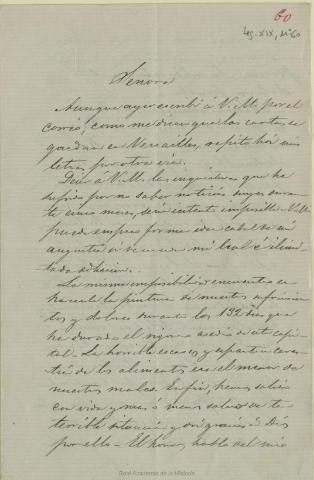 60
Leg. XIX, nº 60
Señora
Aunque ayer escribí á V.M. por el
correo, como me dicen que las cartas se
quedan en Versailles, repito hoi mis
letras por otra via.
Decir á V.M. las inquietudes que he
sufrido por no saber noticias suyas duran
te cinco meses, seria intento imposible. V.M.
puede empero formar idea cabal de mi
angustia si recuerda mi leal é ilimi
tada adhesion.
La misma imposibilidad encuentro en
hacerle la pintura de nuestros sufrimien
tos y dolores durante los 132 dias que
ha durado el riguroso asedio de esta capi
tal. La horrible escasez y espantosa cares
tía de los alimentos era el menor de
nuestros males. En fin, hemos salido
con vida y mas ó menos salud de tan
terrible situacion y doi gracias á Dios
por ello. El honor, habla del mio
Real Academia de la Historia